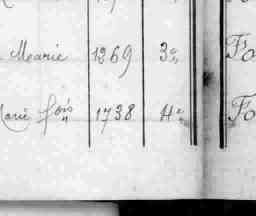 Marie 1269 3e Fo
Marie fçois 1738 4e Fo